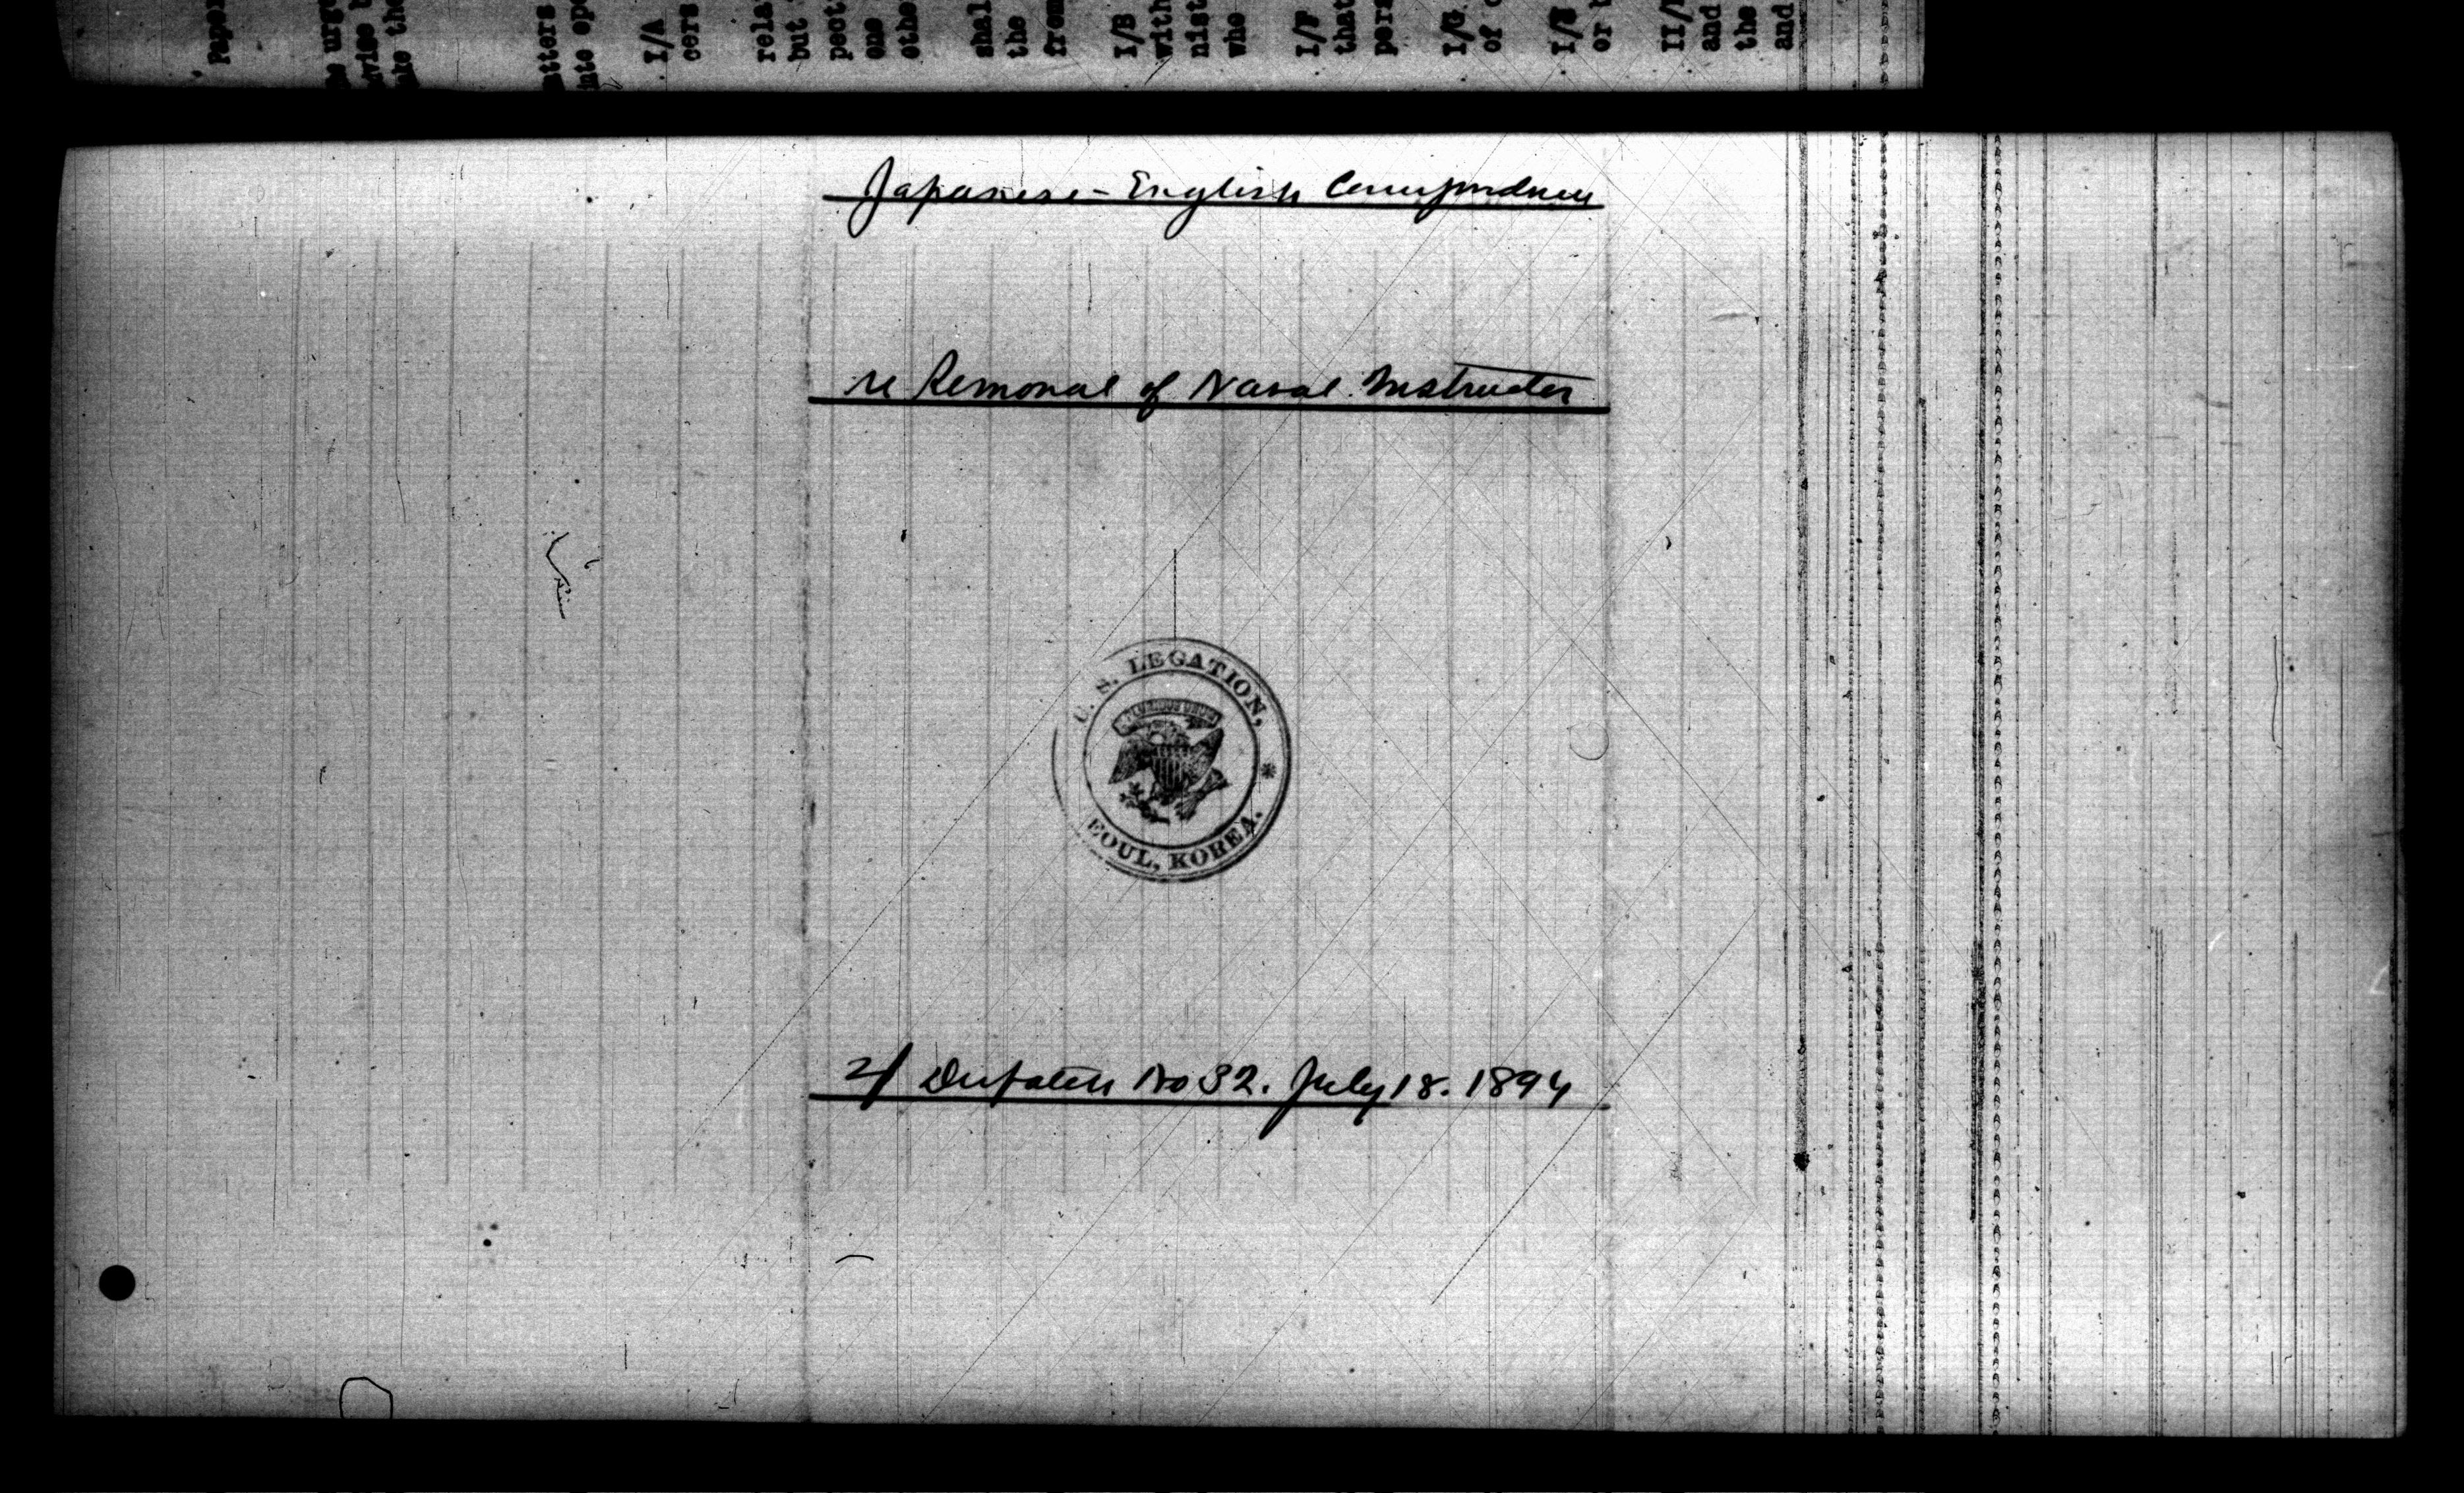 Japanese-English Correspondence
re Removal of Naval Instructor
U. S. LEGATION,
E PLURIBUS UNUM
EOUL, KOREA.
2/ Dispatch No 32. July 18. 1894
Paper
I/A
cers
rela
but
pect
one
othe
shal
the
from
I/B
with
nist
who
I/F
that
pers
I/G
of
I/E
or
II/
and
the
and